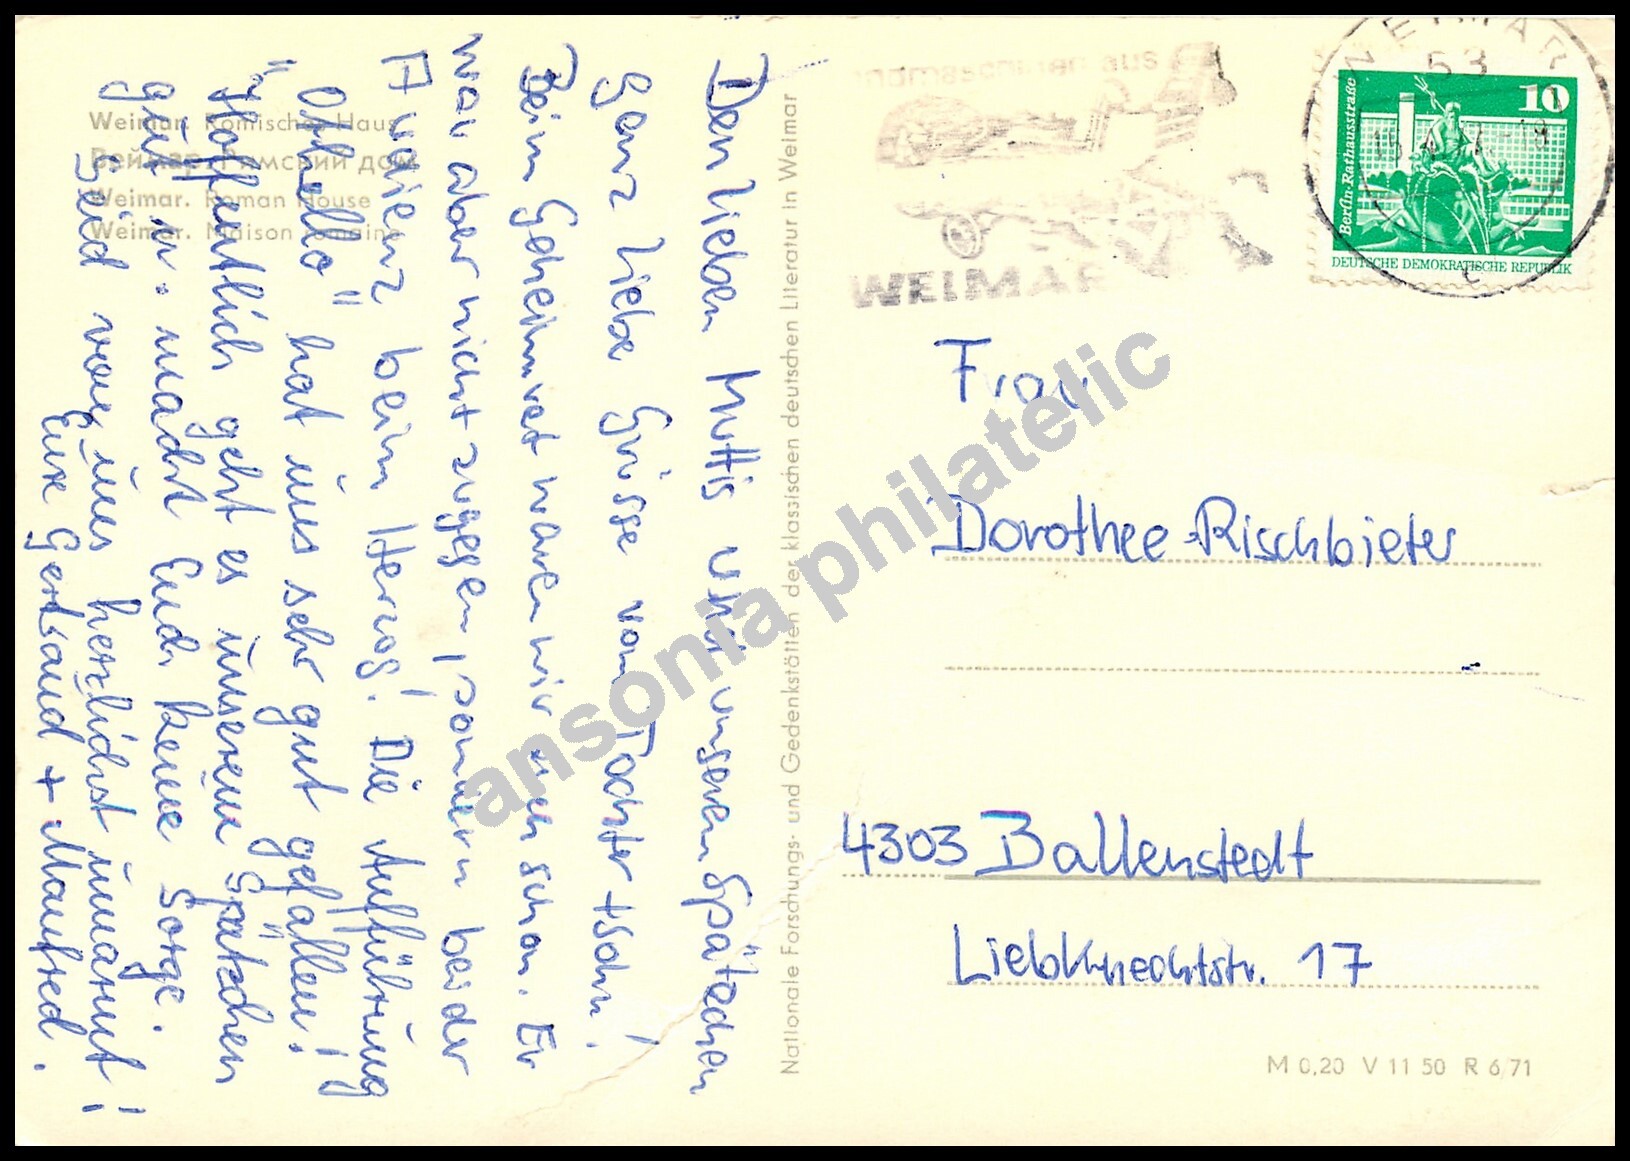 Weimar. Römisches Haus
Веймар. Римский дом
Weimar. Roman House
Weimar. Maison romaine
Den lieben Muttis und unseren Spätchen
ganz liebe Grüsse von Tochter + Sohn!
Beim Geheimrat waren wir auch schon. Er
war aber nicht zugegen, sondern bei der
Audienz beim Herzog! Die Aufführung
"Othello" hat uns sehr gut gefallen!
Hoffentlich geht es unserem Spätchen
gut u. macht Euch keine Sorge.
Seid von uns herzlichst umarmt!
Eure Gertraud + Manfred.
Nationale Forschungs- und Gedenkstätten der klassischen deutschen Literatur in Weimar
aus
WEIMAR
WEIMAR
53
10
Berlin-Rathausstraße
DEUTSCHE DEMOKRATISCHE REPUBLIK
Frau
Dorothee Rischbieter
4303 Ballenstedt
Liebknechtstr. 17
M 0,20 V 11 50 R 6/71
ansonia philatelic